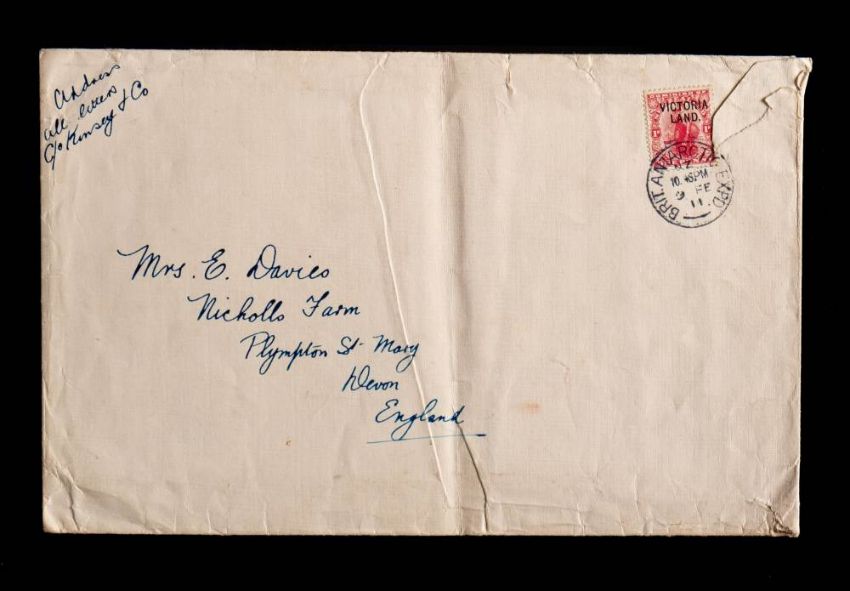 Address
all letters
C/o Kinsey & Co
VICTORIA
LAND.
1D 1D
BRIT. ANTARCTIC EXPD.
NZ
10.45PM
9 FE
11
Mrs. E. Davies
Nicholls Farm
Plympton St. Mary
Devon
England